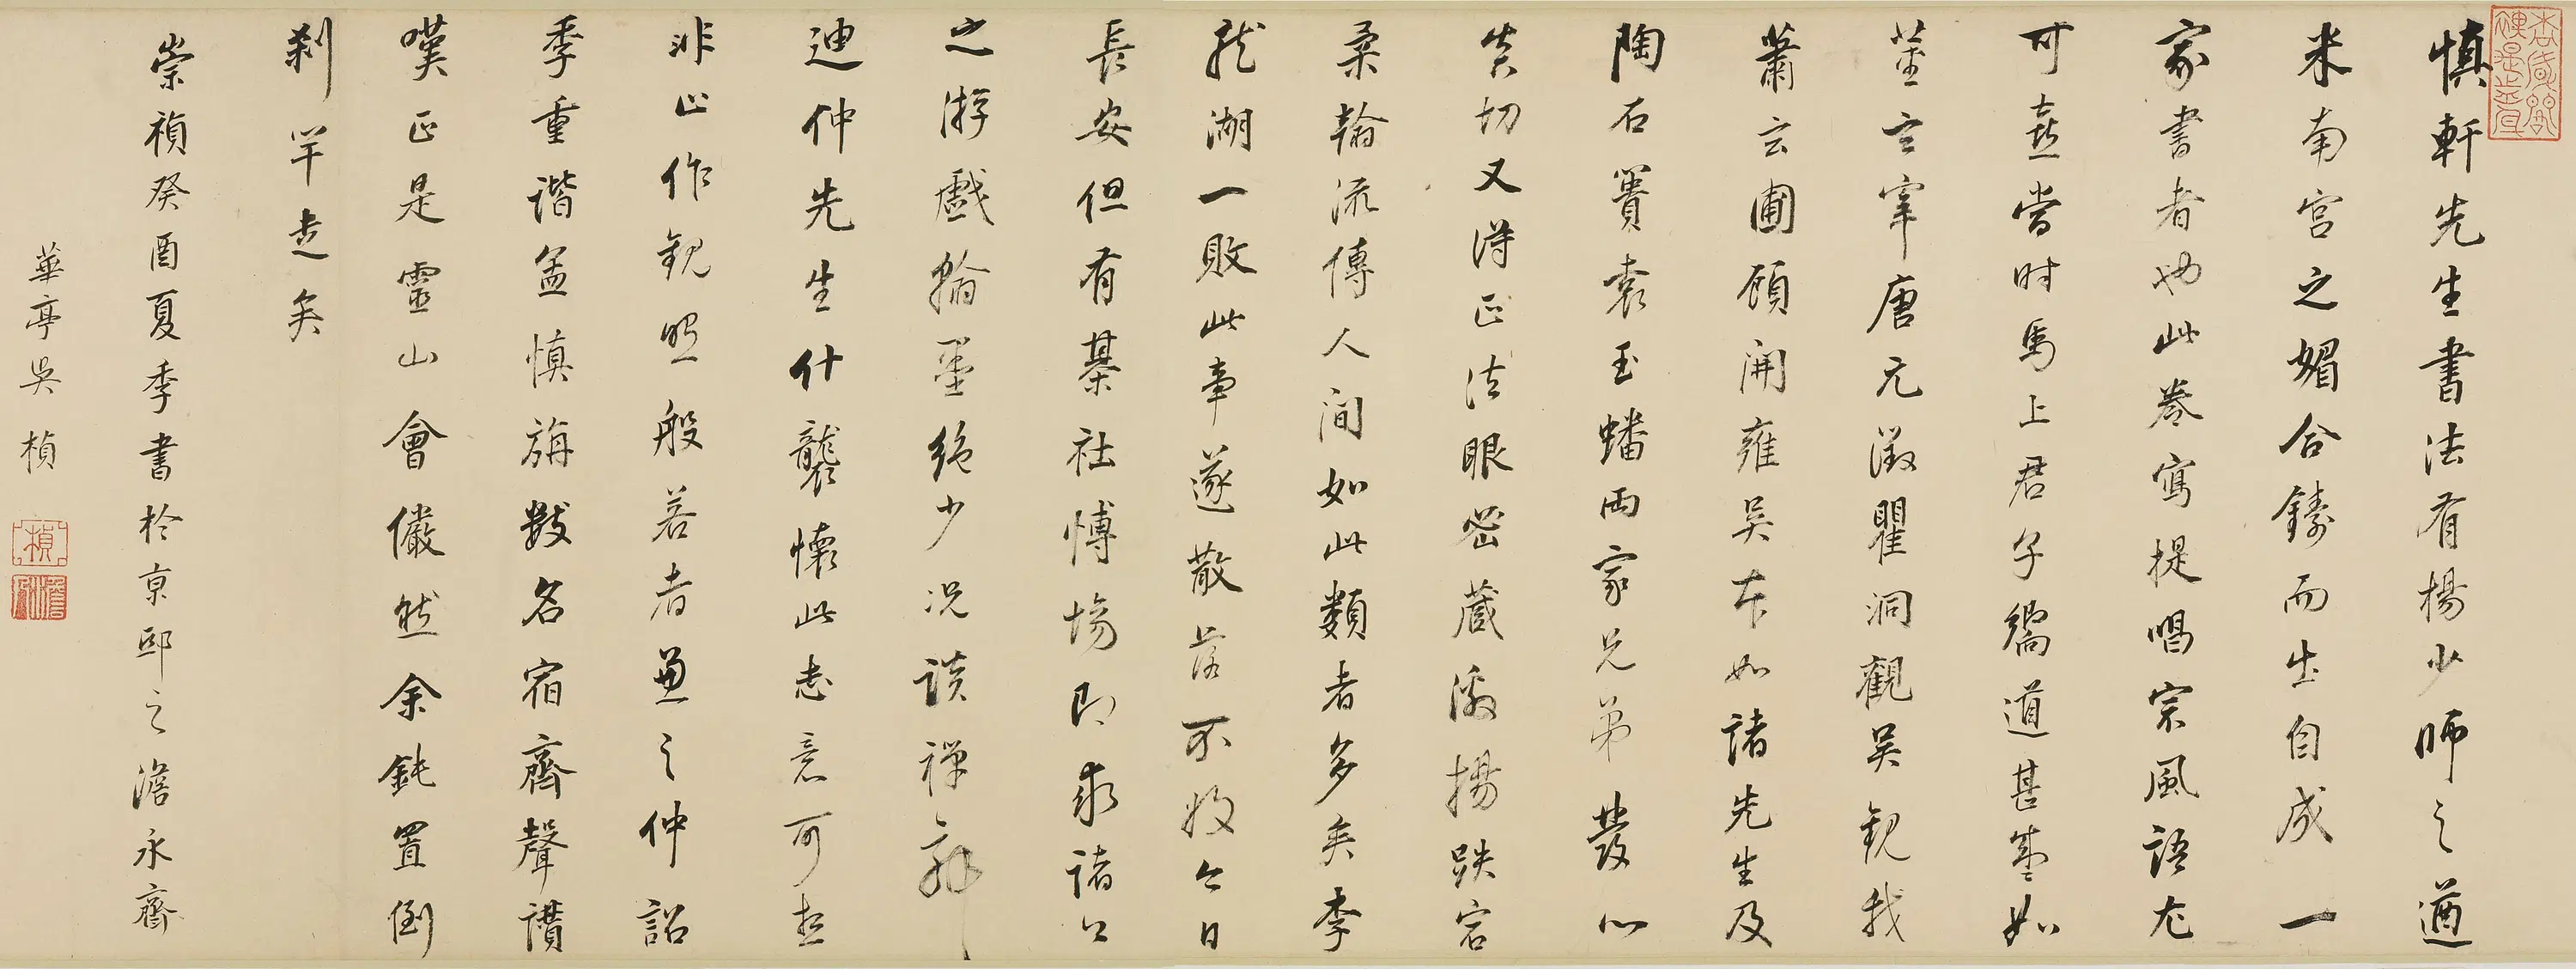 慎軒先生書法有楊少師之遒
米南宮之媚合鑄而出自成一
家書者也此卷寫提唱宗風語尤
可喜當時馬上君子徧道甚盛如
董玄宰唐元徵瞿洞觀吳觀我
蕭玄圃顧開雍吳本如諸先生及
陶石簣袁玉蟠兩家兄弟發心
真切又得正法眼密藏激揚跌宕
柔翰流傳人間如此類者多矣李
龍湖一敗此事遂散落不收今日
長安但有棊社博場即求諸公
之游戲翰墨絕少況談禪
迪仲先生什襲懷此志意可想
非止作觀照般若者兼之仲詔
季重諧孟慎旃數名宿齊聲讚
嘆正是靈山會儼然余鈍置倒
剎竿走矣
崇禎癸酉夏季書於京邸之澹永齋
華亭吳楨
楨